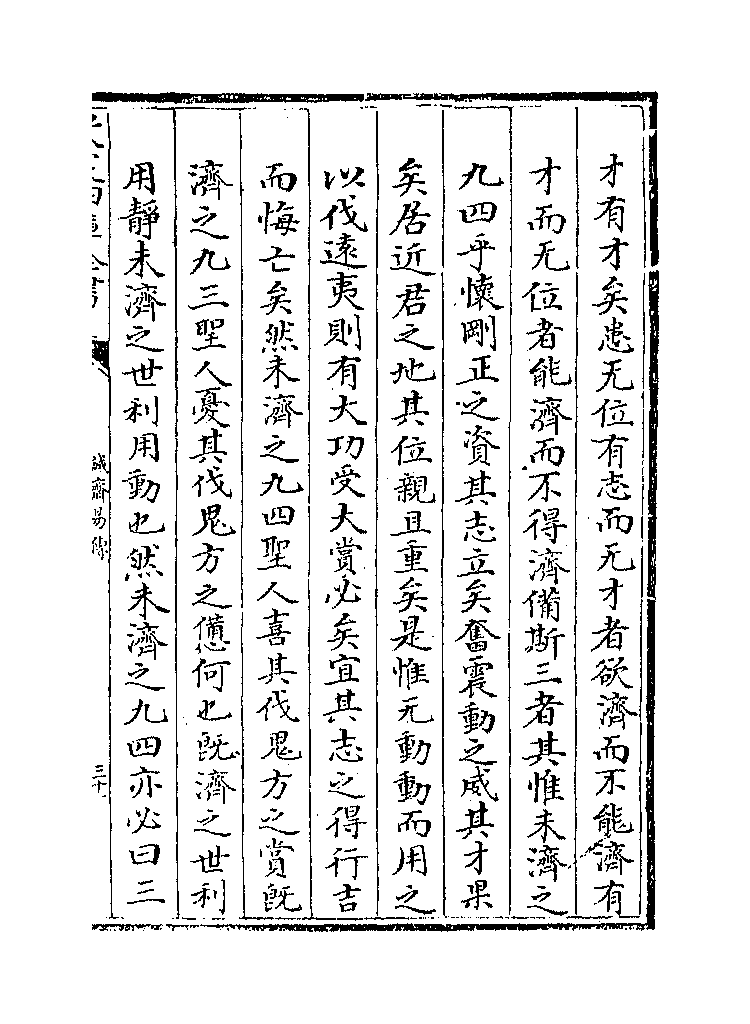 才有才矣患无位有志而无才者欲濟而不能濟有
才而无位者能濟而不得濟備斯三者其惟未濟之
九四乎懷剛正之資其志立矣奮震動之威其才果
矣居近君之地其位親且重矣是惟无動動而用之
以伐遠夷則有大功受大賞必矣宜其志之得行吉
而悔亡矣然未濟之九四聖人喜其伐鬼方之賞既
濟之九三聖人憂其伐鬼方之憊何也既濟之世利
用靜未濟之世利用動也然未濟之九四亦必曰三
誠齋易傳